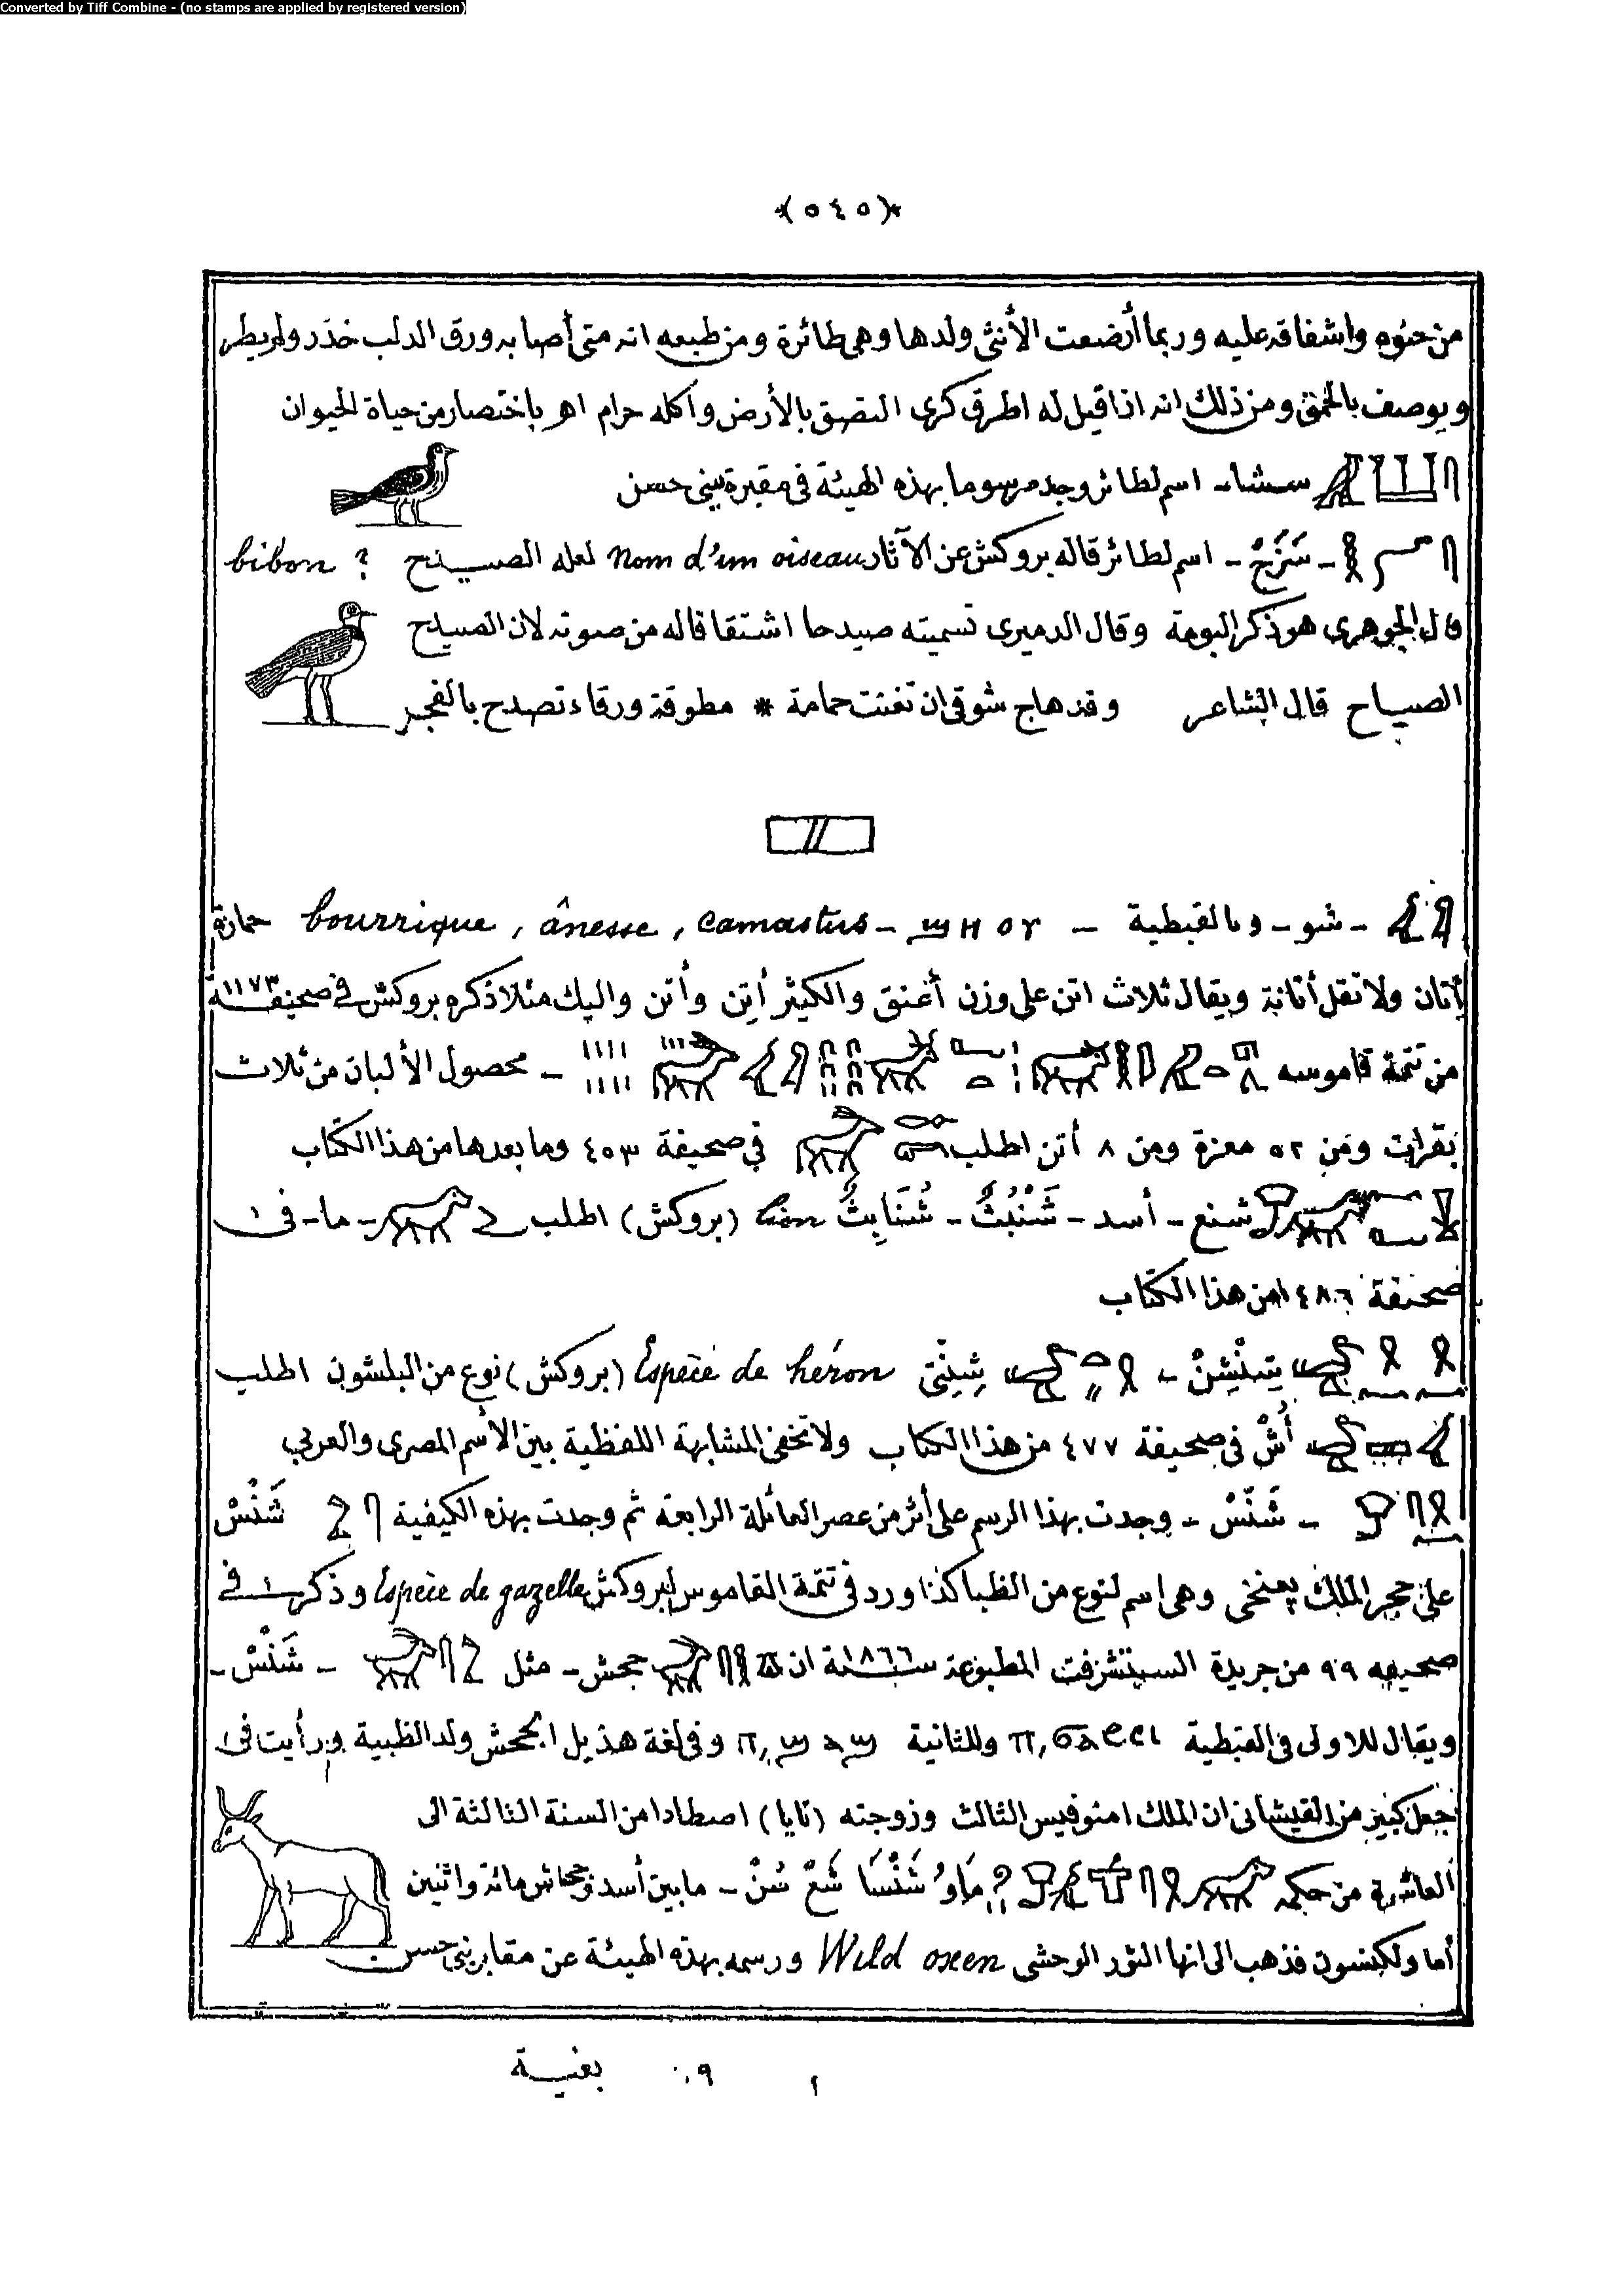 Converted by Tiff Combine - (no stamps are applied by registered version)
﴿٥٤٥﴾
من حنوه واشفاقه عليه وربما أرضعت الأنثى ولدها وهى طائرة ومن طبعه انه متى أصابه ورق الدلب خدر ولم يطر
ويوصف بالحمق ومن ذلك انه اذا قيل له اطرق كرى التصق بالأرض وأكله حرام اهر باختصار من حياة الحيوان
سشا - اسم لطائر وجد مرسوما بهذه الهيئة فى مقبرة ببنى حسن
اسم لطائر قاله بروكش عن الآثار nom d'un oiseau لعله الصيدح ? bibon
قال الجوهرى هو ذكر البومة وقال الدميرى تسميته صيدحا اشتقاقا له من صوته لان الصيدح
الصياح قال الشاعر وقد هاج شوقى ان تغنت حمامة * مطوقة ورقاء تصدح بالفجر
- شو - وبالقبطية - camastus, ânesse, bourrique حمارة
أتان ولا تقل أتانة ويقال ثلاث اتن على وزن أعنق والكثير أتن وأتن واليك مثلا ذكره بروكش فى صحيفة ١١٧٣
من تتمة قاموسه - محصول الألبان من ثلاث
بقرات ومن ٥٢ معزة ومن ٨ أتن اطلب فى صحيفة ٤٥٣ وما بعدها من هذا الكتاب
شنع - أسد - شنبث - شنابث lion (بروكش) اطلب - ما - فى
صحيفة ٤٨٦ من هذا الكتاب
Espèce de héron (بروكش) نوع من البلشون اطلب
أش فى صحيفة ٤٧٧ من هذا الكتاب ولا تخفى المشابهة اللفظية بين الأسم المصرى والعربى
- شنس - وجدت بهذا الرسم على أثر من عصر العائلة الرابعة ثم وجدت بهذه الكيفية شنس
على حجر الملك بعنخى وهى اسم لنوع من الظبا كذا ورد فى تتمة القاموس لبروكش Espèce de gazelle وذكر فى
صحيفه ٩٩ من جريدة السيتشرفت المطبوعة سنة ١٨٦٦ ان جحش - مثل - شنس -
ويقال للاولى فى القبطية وللثانية وفى لغة هذيل الجحش ولد الظبية ورأيت فى
جعل كبير من القيشانى ان الملك امنوفيس الثالث وزوجته (تايا) اصطادا من السنة الثالثة الى
العاشرة من حكمه ماو شنسا شع سن - ما بين أسد وجحاش مائة واثنين
أما ولكنسون فذهب الى انها الثور الوحشى Wild oxen ورسمه بهذه الهيئة عن مقابر بنى حسن
٢ ٩ بغية